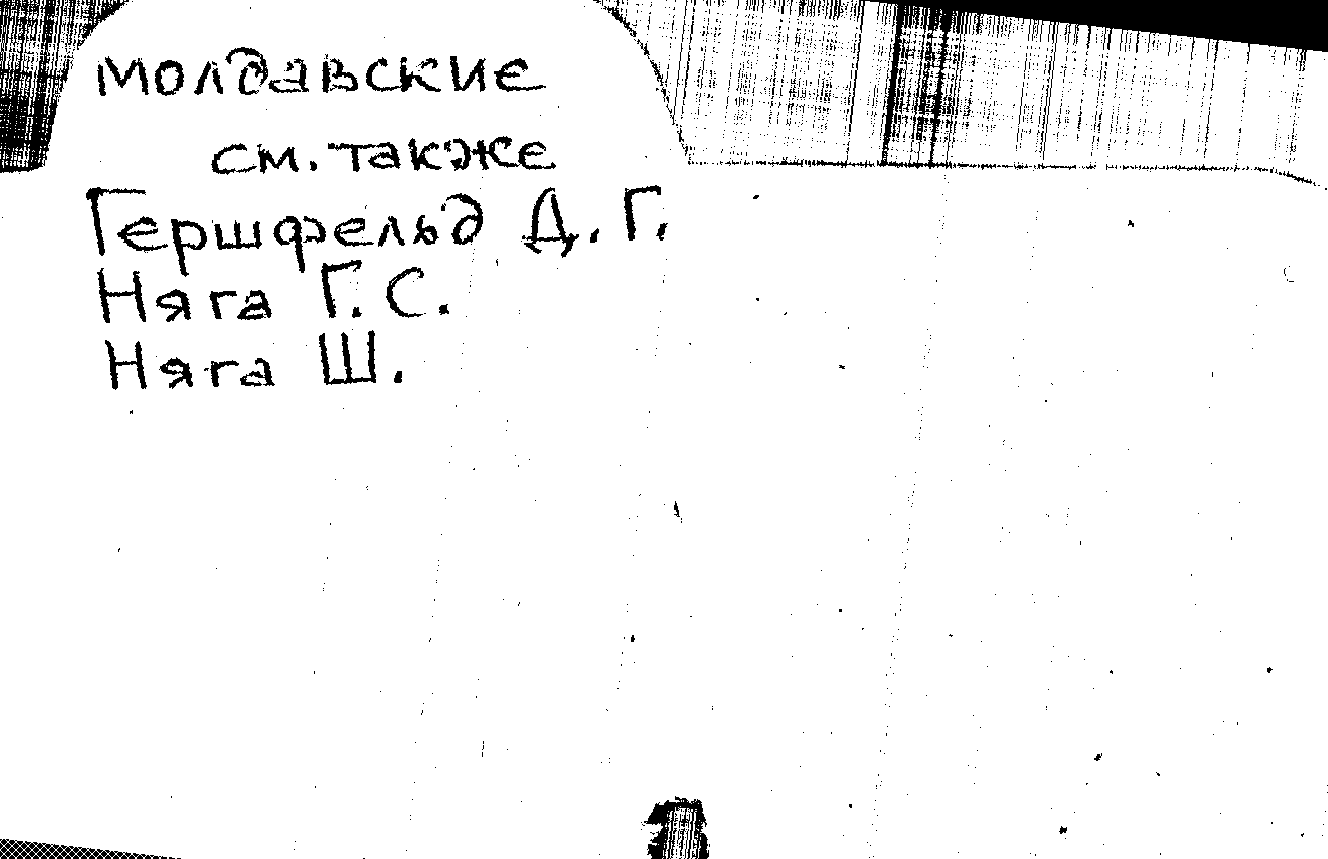 молдавские
см. также
Гершфельд Д. Г.
Няга Г. С.
Няга Ш.